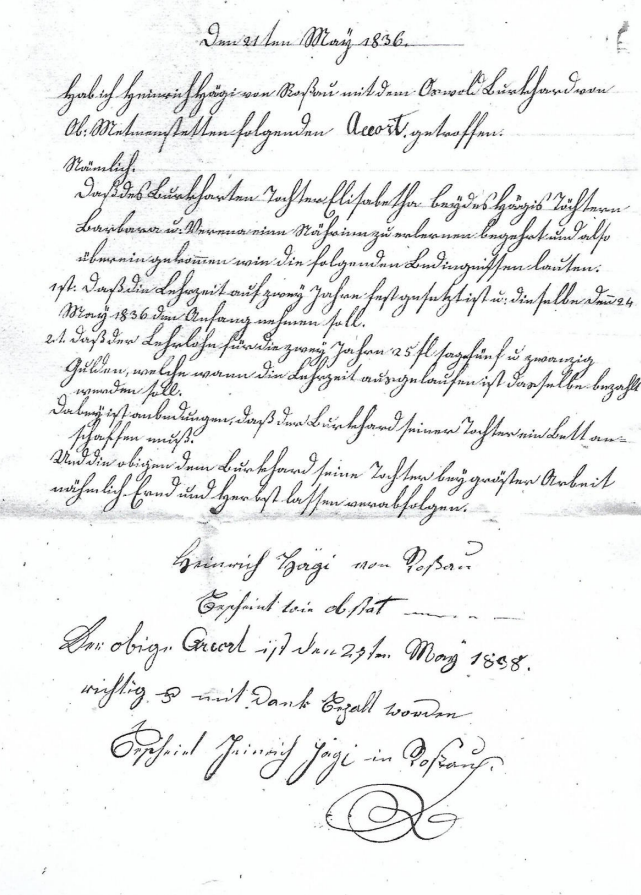 Den 21ten May 1836.
Hab ich Heinrich Hägi von Roßau mit dem Oswold Burkhard von
Ob: Metmenstetten folgenden Accort. getroffen.
Nämlich.
Daß des Burkharten Tochter Elisabetha bey des Hägis Töchtern
Barbara u: Verena eine Nähriin zu erlernen begehrt und also
überein gekommen wie die folgenden Bedingnissen lauten.
1st: Daß die Lehrzeit auf zwey Jahre fest gesetzt ist u: dieselbe den 24
May 1836 den Anfang nehmen soll.
2t. daß der Lehrlohn für die zwey Jahre 25 fl sage fünf u zwanzig
Gulden, welche wann die Lehrzeit ausgelaufen ist dasselbe bezahlt
werden soll.
Dabey ist anbedungen, daß der Burkhard seiner Tochter ein Bett an-
schaffen muß.
Und die obigen dem Burkhard seine Tochter bey gröster Arbeit
nähmlich Ernd und Herbst lassen verabfolgen.
Heinrich Hägi von Roßau
Bescheint wie obstat
Der obige Accort ist den 29ten May 1838.
richtig & mit Dank Bezalt worden
Bescheint Heinrich Hägi in Roßau.